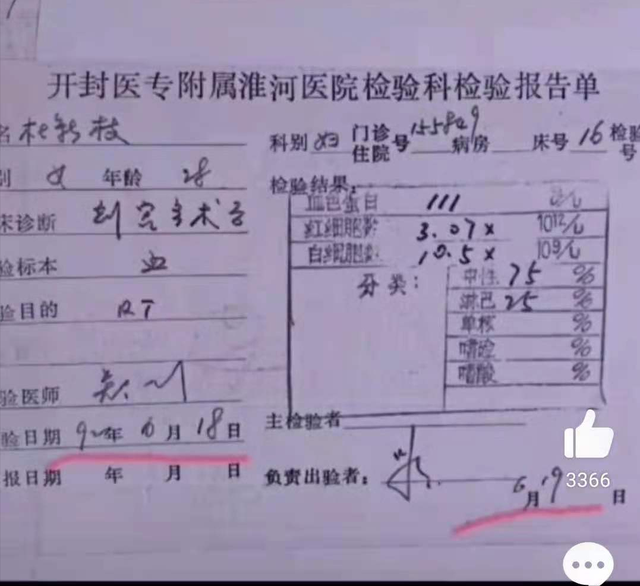 开封医专附属淮河医院检验科检验报告单
名 杜新枝 科别 妇 门诊住院号 155849 病房 床号 16 检验号
别 女 年龄 28 检验结果:
血色蛋白 111 g/L
床诊断 剖宫手术后 红细胞数 3.07 x 1012/L
验标本 血 白细胞数 10.5 x 109/L
分类: 中性 75 %
验目的 RT 淋巴 25 %
单核 %
嗜硷 %
嗜酸 %
验医师
主检验者
验日期 92年 6月 18日
报日期 年 月 日 负责出验者: 6月19日
3366